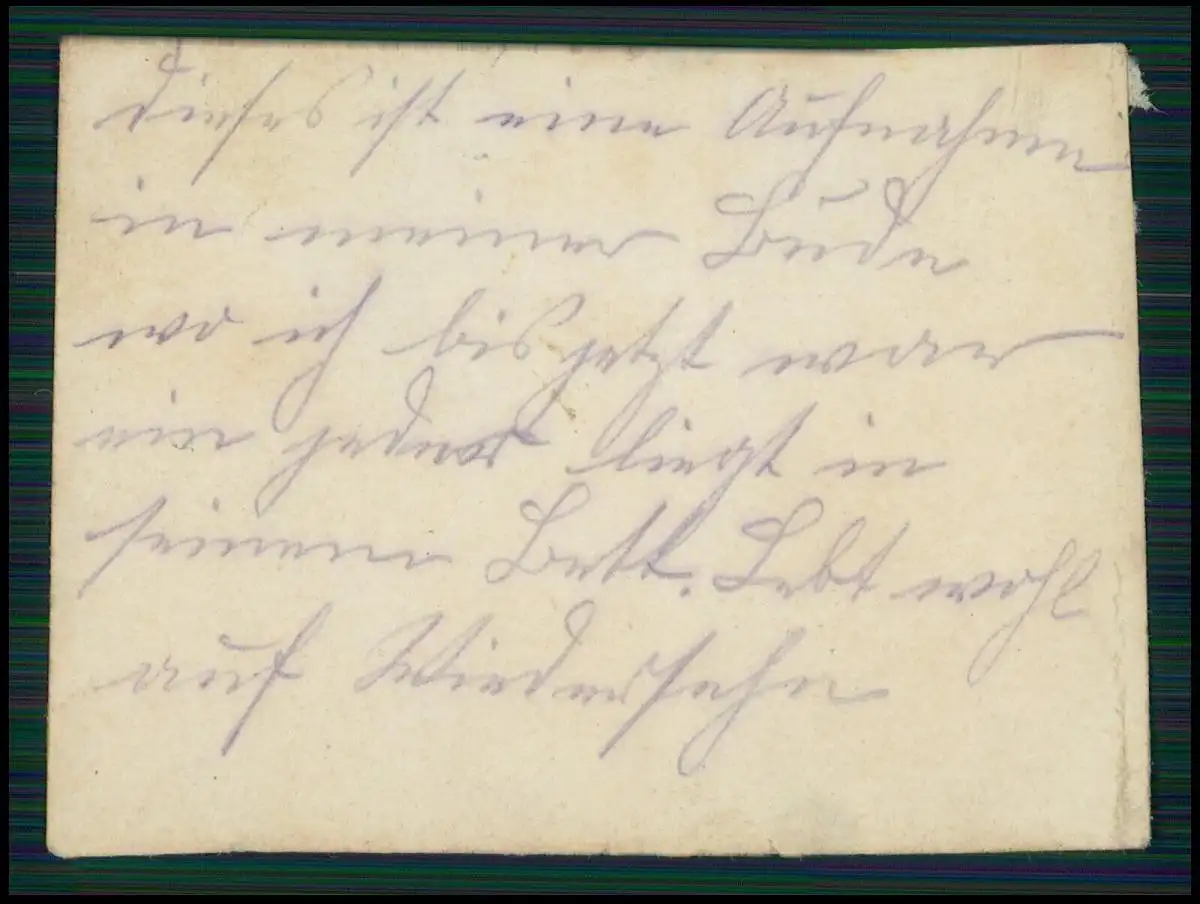 dieses ist eine Aufnahme
in meiner Bude
wo ich bis jetzt war
ein jeder liegt in
seinem Bett. Lebt wohl
auf Wiedersehn